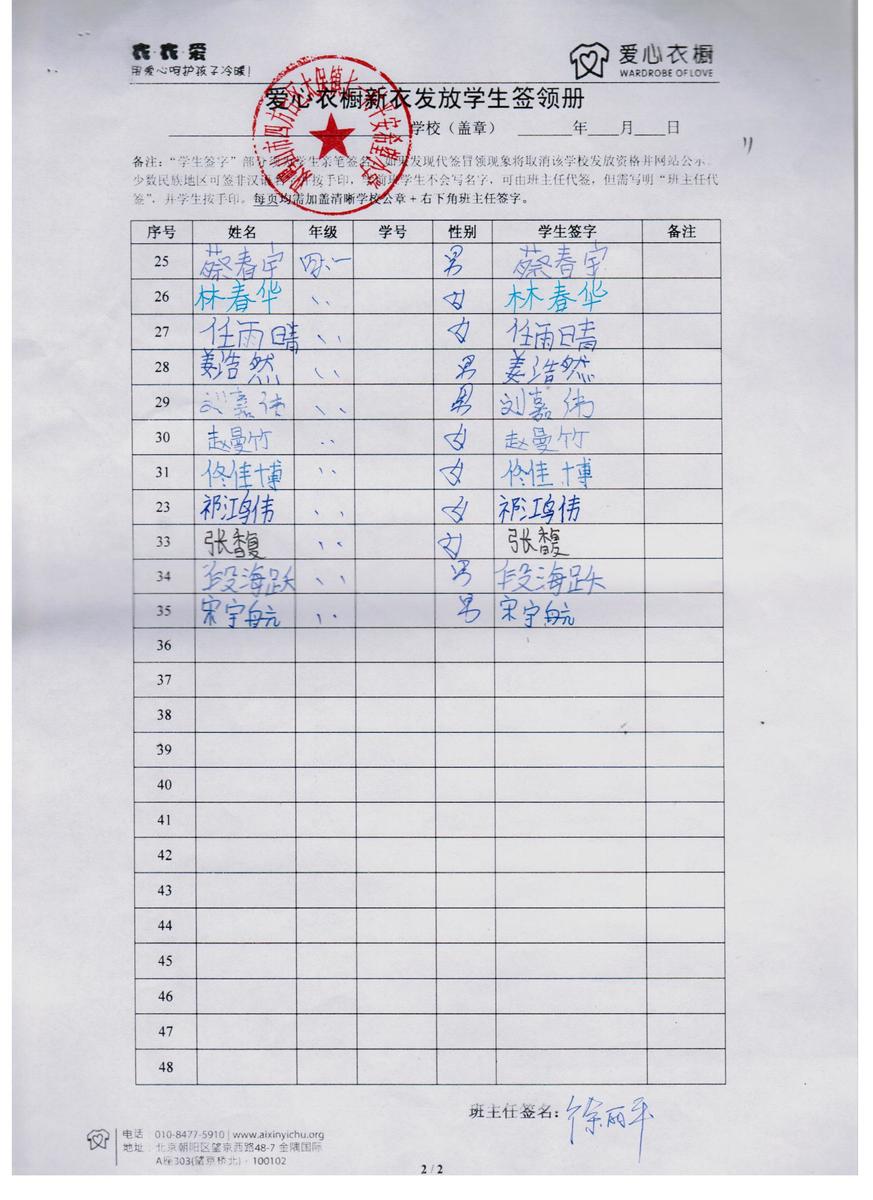 衣·衣·爱
用爱心呵护孩子冷暖!
爱心衣橱
WARDROBE OF LOVE
爱心衣橱新衣发放学生签领册
学校（盖章） 年 月 日
备注：“学生签字”部分 学生亲笔签名，如果发现代签冒领现象将取消该学校发放资格并网站公示。
少数民族地区可签非汉语 并按手印，学前班学生不会写名字，可由班主任代签，但需写明“班主任代
签”，并学生按手印。每页均需加盖清晰学校公章+右下角班主任签字。
序号 姓名 年级 学号 性别 学生签字 备注
25 蔡春宇 四.一 男 蔡春宇
26 林春华 、、 女 林春华
27 任雨晴 、、 女 任雨晴
28 姜浩然 、、 男 姜浩然
29 刘嘉伟 、、 男 刘嘉伟
30 赵曼竹 、、 女 赵曼竹
31 佟佳博 、、 女 佟佳博
23 祁鸿伟 、、 女 祁鸿伟
33 张馥 、、 女 张馥
34 段海跃 、、 男 段海跃
35 宋宇航 、、 男 宋宇航
36
37
38
39
40
41
42
43
44
45
46
47
48
班主任签名：徐丽平
电话：010-8477-5910 | www.aixinyichu.org
地址：北京朝阳区望京西路48-7 金隅国际
A座303(望京桥北)·100102
2 / 2